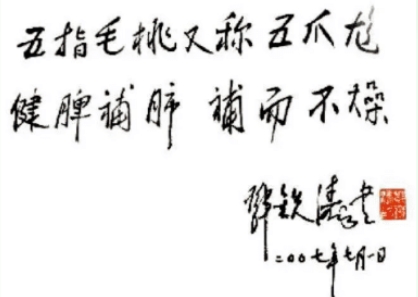 五指毛桃又称五爪尨
健脾補肺 補而不燥
鄧鉄涛書
二00七年七月一日